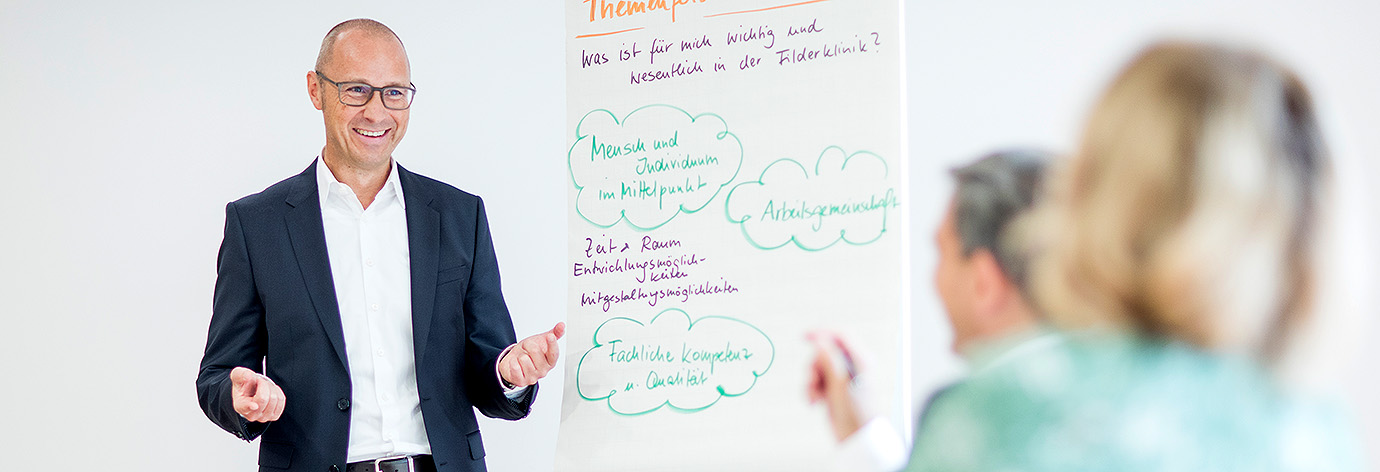 Themenfel
Was ist für mich wichtig und
wesentlich in der Filderklinik?
Mensch und
Individuum
im Mittelpunkt
Arbeitsgemeinschaft
Zeit & Raum
Entwicklungsmöglich-
keiten
Mitgestaltungsmöglichkeiten
Fachliche Kompetenz
u. Qualität